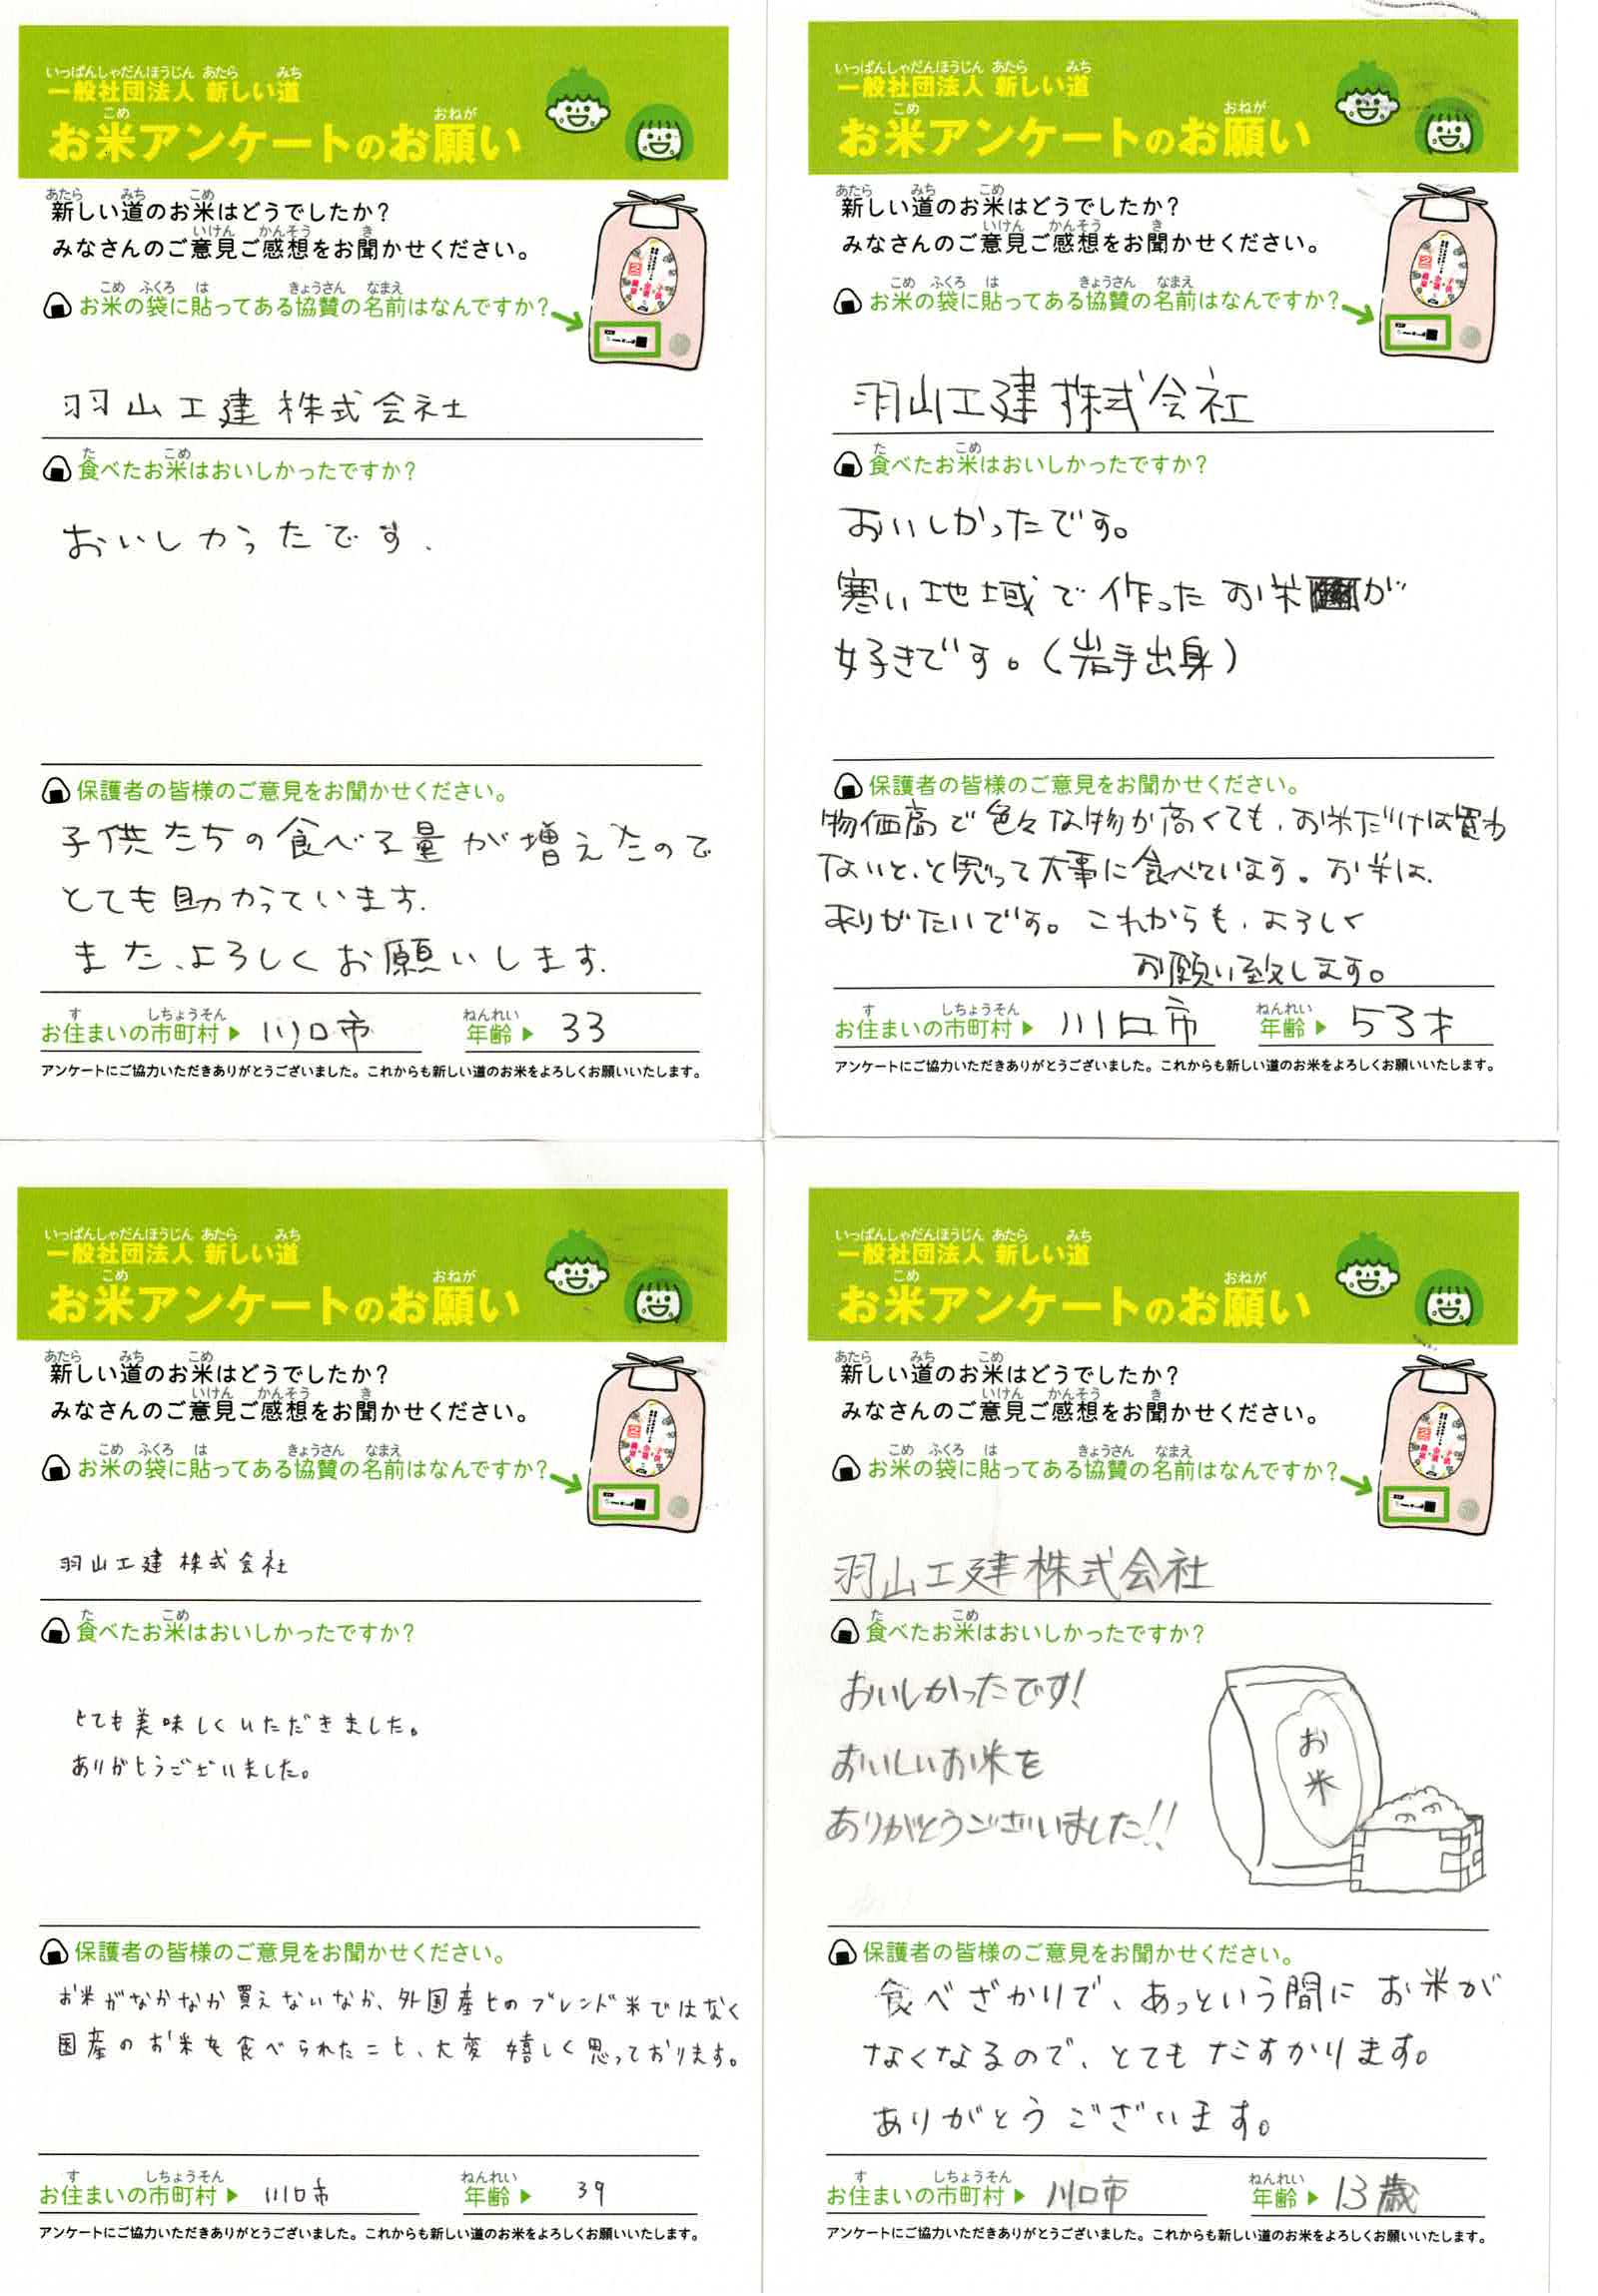 いっぱんしゃだんほうじん あたら みち
一般社団法人 新しい道
こめ おねが
お米アンケートのお願い
あたら みち こめ
新しい道のお米はどうでしたか？
いけん かんそう き
みなさんのご意見ご感想をお聞かせください。
こめ ふくろ は きょうさん なまえ
お米の袋に貼ってある協賛の名前はなんですか？
羽山工建株式会社
た こめ
食べたお米はおいしかったですか？
おいしかったです.
保護者の皆様のご意見をお聞かせください。
子供たちの食べる量が増えたので
とても助かっています.
また、よろしくお願いします.
す しちょうそん ねんれい
お住まいの市町村▶ 川口市 年齢▶ 33
アンケートにご協力いただきありがとうございました。これからも新しい道のお米をよろしくお願いいたします。
いっぱんしゃだんほうじん あたら みち
一般社団法人 新しい道
こめ おねが
お米アンケートのお願い
あたら みち こめ
新しい道のお米はどうでしたか？
いけん かんそう き
みなさんのご意見ご感想をお聞かせください。
こめ ふくろ は きょうさん なまえ
お米の袋に貼ってある協賛の名前はなんですか？
羽山工建株式会社
た こめ
食べたお米はおいしかったですか？
おいしかったです。
寒い地域で作ったお米が
好きです。（岩手出身）
保護者の皆様のご意見をお聞かせください。
物価高で色々な物が高くても、お米だけは買わ
ないと、と思って大事に食べています。お米は、
ありがたいです。これからも、よろしく
お願い致します。
す しちょうそん ねんれい
お住まいの市町村▶ 川口市 年齢▶ 53才
アンケートにご協力いただきありがとうございました。これからも新しい道のお米をよろしくお願いいたします。
いっぱんしゃだんほうじん あたら みち
一般社団法人 新しい道
こめ おねが
お米アンケートのお願い
あたら みち こめ
新しい道のお米はどうでしたか？
いけん かんそう き
みなさんのご意見ご感想をお聞かせください。
こめ ふくろ は きょうさん なまえ
お米の袋に貼ってある協賛の名前はなんですか？
羽山工建株式会社
た こめ
食べたお米はおいしかったですか？
とても美味しくいただきました。
ありがとうございました。
保護者の皆様のご意見をお聞かせください。
お米がなかなか買えないなか、外国産とのブレンド米ではなく
国産のお米を食べられたこと、大変嬉しく思っております。
す しちょうそん ねんれい
お住まいの市町村▶ 川口市 年齢▶ 39
アンケートにご協力いただきありがとうございました。これからも新しい道のお米をよろしくお願いいたします。
いっぱんしゃだんほうじん あたら みち
一般社団法人 新しい道
こめ おねが
お米アンケートのお願い
あたら みち こめ
新しい道のお米はどうでしたか？
いけん かんそう き
みなさんのご意見ご感想をお聞かせください。
こめ ふくろ は きょうさん なまえ
お米の袋に貼ってある協賛の名前はなんですか？
羽山工建株式会社
た こめ
食べたお米はおいしかったですか？
おいしかったです!
おいしいお米を
ありがとうございました!!
お米
保護者の皆様のご意見をお聞かせください。
食べざかりで、あっという間にお米が
なくなるので、とてもたすかります。
ありがとうございます。
す しちょうそん ねんれい
お住まいの市町村▶ 川口市 年齢▶ 13歳
アンケートにご協力いただきありがとうございました。これからも新しい道のお米をよろしくお願いいたします。